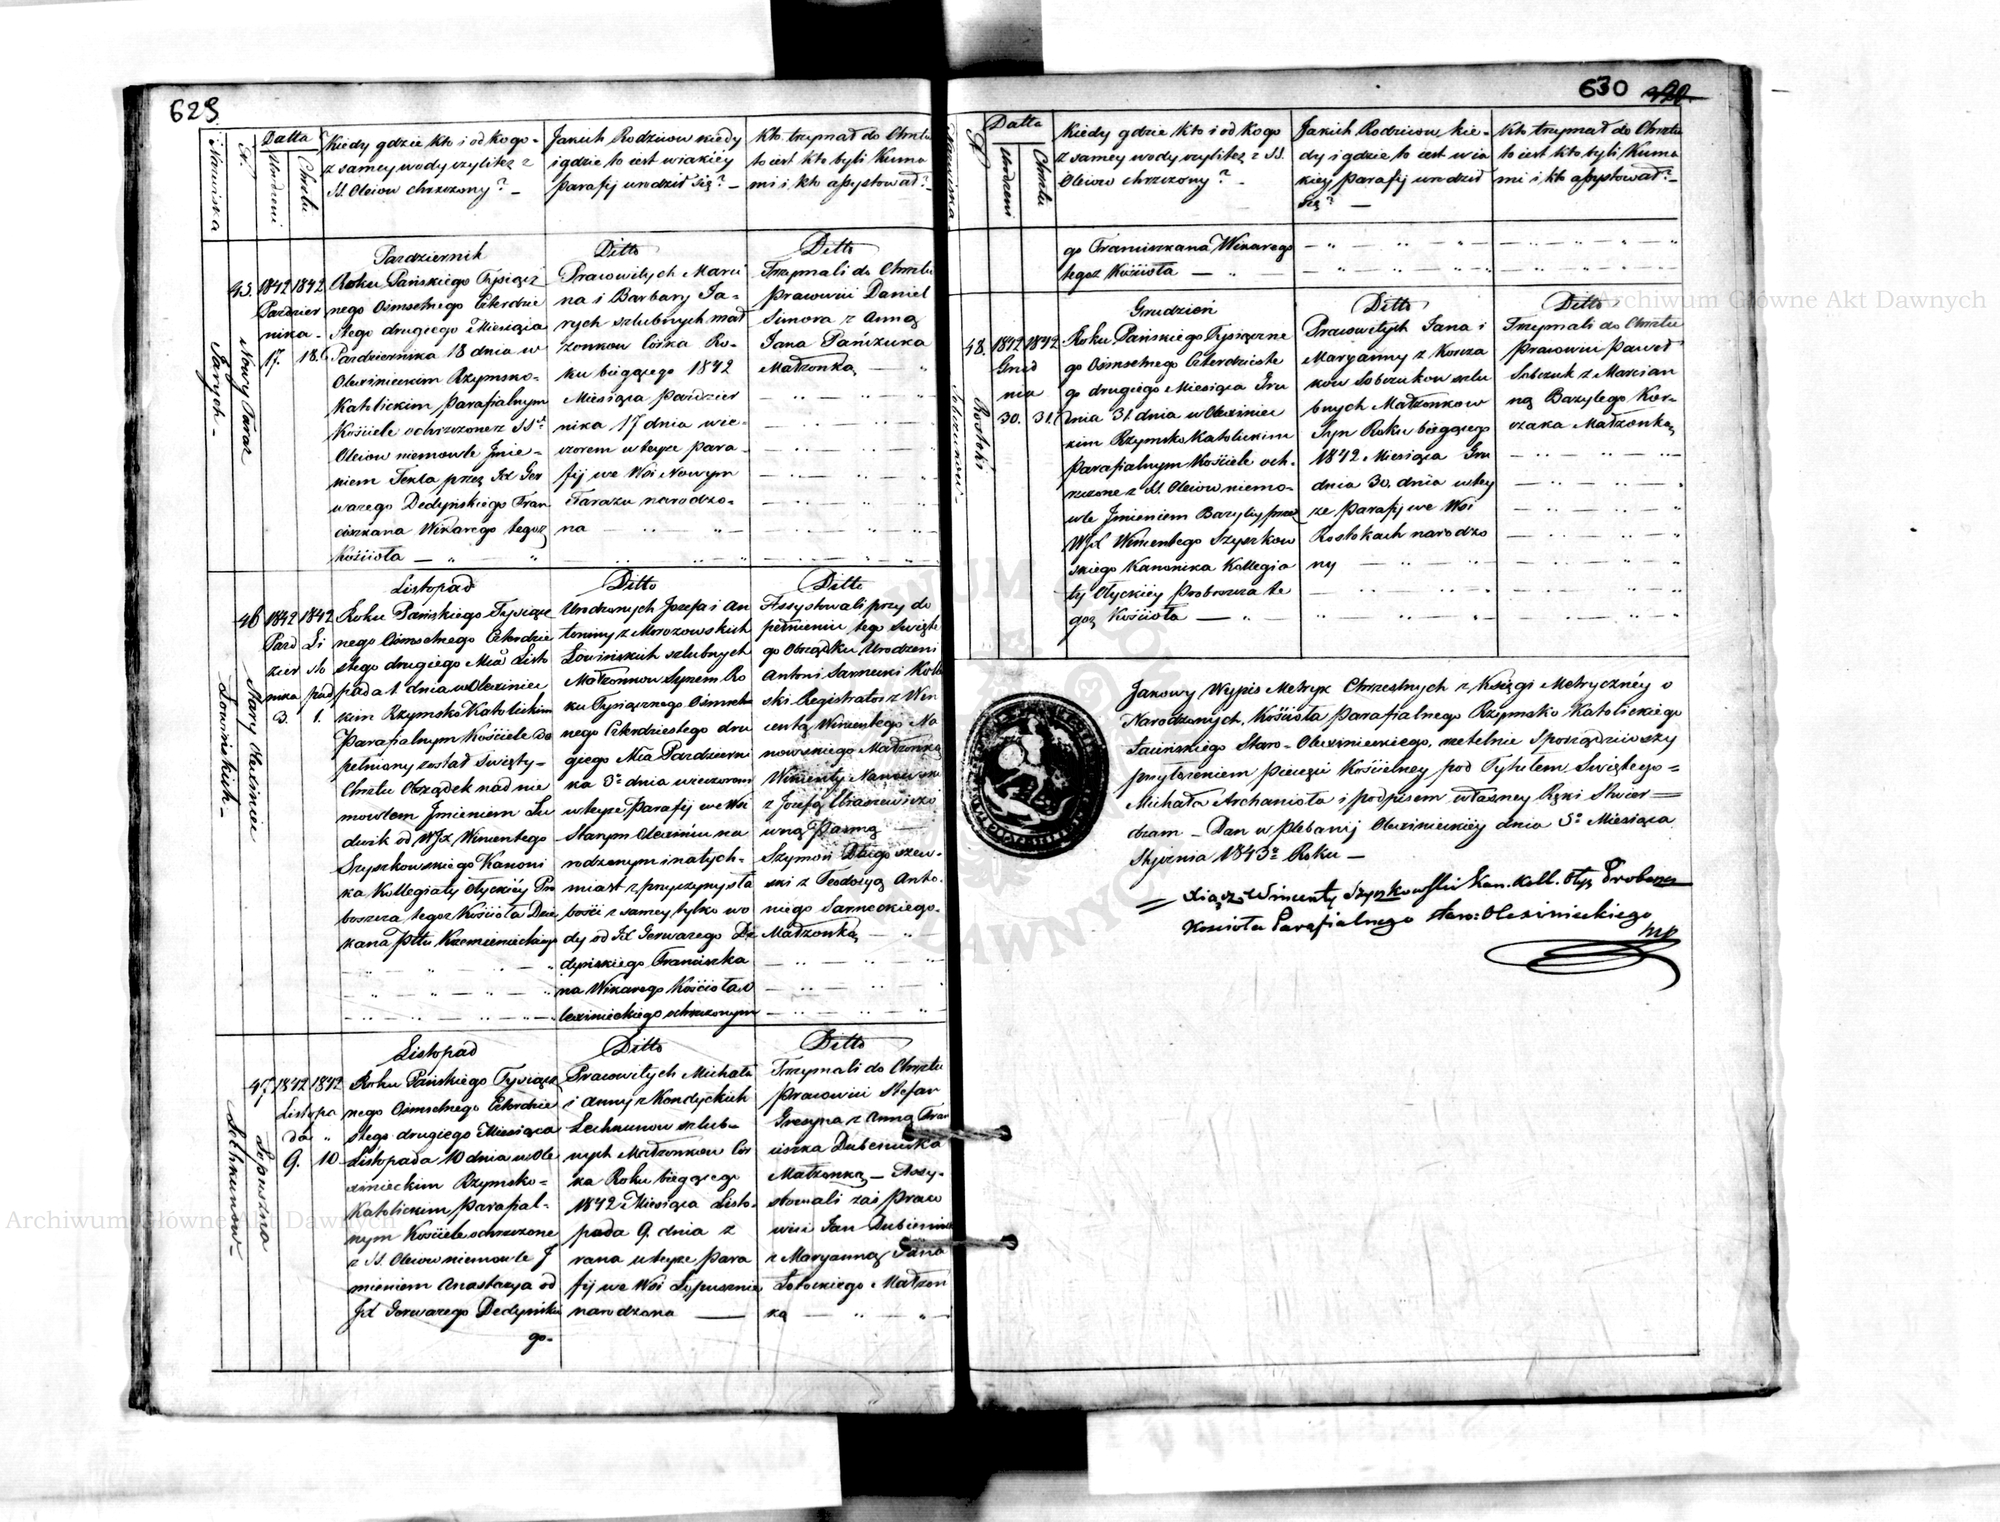 629
Nazwiska
N.
Datta
Urodzeni
Chrztu
Kiedy gdzie kto i od kogo
z samey wody czyliteż z
SS. Oleiow chrzczony? –
Jakich Rodzicow kiedy
i gdzie to iest w iakiéy
parafij urodził się? –
Kto trzymał do Chrztu
to iest kto byli Kuma
mi i kto assystował? –
45.
1842
Pazdzier
nika
17.
1842
18.
Nowy Taraz
Jarych –
Pazdziernik
Roku Pańskiego Tysiącz
nego Osmsetnego Czterdzie
stego drugiego Miesiąca
Pazdziernika 18 dnia w
Olexinieckim Rzymsko-
Katolickim Parafialnym
Kościele ochrzczone z SS.
Oleiow niemowle Imie-
niem Tekla przez JX Ger
wazego Dedyńskiego Fran
ciszkana Wikarego tegoz
Kościoła –
Ditto
Pracowitych Marci
na i Barbary Ja-
rych szlubnych mał
żonkow Córka Ro-
ku biegącego 1842
Miesiąca Pazdzier
nika 17 dnia wie-
czorem w teyze para-
fij we Wsi Nowym
Tarazu narodzo-
na –
Ditto
Trzymali do Chrztu
pracowici Daniel
Simora z Anną
Jana Pańczuka
Małżonką
46
1842
Pazd
zier
nika
3.
1842
Li
sto
pad
1.
Stary Olexiniec
Łowińskich –
Listopad
Roku Pańskiego Tysiącz
nego Osmsetnego Czterdzie
stego drugiego Mca Listo
pada 1. dnia w Olexiniec
kim Rzymsko Katolickim
Parafialnym Kościele do
pełniony został Święty-
Chrztu Obrządek nad nie
mowlem Imieniem Lu
dwik od WJX Wincentego
Szyszkowskiego Kanoni
ka Kollegiaty Ołyckiéy Pro
boszcza tegoz Kościoła Dzie
kana Pttu Krzemienieckiego
Ditto
Urodzonych Jozefa i An
toniny z Morozowskich
Łowińskich szlubnych
Małżonkow Synem Ro
ku Tysiącznego Osmset
nego Czterdziestego dru
giego Mca Pazdzierni
ka 3o dnia wieczorem
w teyze Parafij we Wsi
Starym Olexińcu na
rodzonym i natych-
miast z przyczyny sła
bości z samey tylko wo
dy od JX Gerwazego De
dyńskiego Franciszka
na Wikarego Kościoła O
lexinieckiego ochrzczonym
Ditto
Assystowali przy do
pełnieniu tego Święte
go Obrządku Urodzeni
Antoni Sarnecki
Registrator z Win
centą Wincentego Na
nowskiego Małżonką
Wincenty Nanowski
z Jozefą
wną Panną
Szymon Długoszew-
ski z Teodozyą Anto-
niego Sarneckiego-
Małżonką
47.
1842
Listopa
da
9.
1842
10
Łopuszna
Lechnunow –
Listopad
Roku Pańskiego Tysiącz
nego Osmsetnego Czterdzie
stego drugiego Miesiąca
Listopada 10 dnia w Ole
xinieckim Rzymsko-
Katolickim Parafial-
nym Kościele ochrzczone
z SS. Oleiow niemowle I
mieniem Anastazya od
JX Gerwazego Dedyńskie
go-
Ditto
Pracowitych Michała
i Anny z Kondyckich
Lechnunow szlub-
nych Małżonkow Cor
ka Roku biegącego
1842 Miesiąca Listo-
pada 9. dnia z
rana w teyze Para
fij we Wsi Łopusznie
narodzona –
Ditto
Trzymali do Chrztu
pracowici Stefan
z Anną Fran
ciszka
Małżonką – Assy-
stowali zaś praco
wici Jan
z Maryanną Jana
Małżon
ką
630
Nazwiska
N.
Datta
Urodzeni
Chrztu
Kiedy gdzie kto i od kogo
z samey wody czyliteż z SS.
Oleiow chrzczony? –
Jakich Rodzicow kie-
dy i gdzie to iest w ia
kiey parafij urodził
się? –
Kto trzymał do Chrztu
to iest kto byli Kuma
mi i kto assystował? –
go Franciszkana Wikarego
tegoz Kościoła –
48.
1842
Grud
nia
30.
1842
31.
Rostoki
Sobczukow –
Grudzień
Roku Pańskiego Tysiączne
go Osmsetnego Czterdzieste
go drugiego Miesiąca Gru
dnia 31. dnia w Olexiniec
kim Rzymsko Katolickim
Parafialnym Kościele och-
rzczone z SS. Oleiow niemo-
wle Imieniem Bazyli przez
WJX Wincentego Szyszkow
skiego Kanonika Kollegia
ty Ołyckiéy Proboszcza te
goz Kościoła –
Ditto
Pracowitych Jana i
Maryanny z Korcza
kow Sobczukow szlu
bnych Małżonkow
Syn Roku biegącego
1842 Miesiąca Gru
dnia 30. dnia w tey
ze parafij we Wsi
Rostokach narodzo
ny –
Ditto
Trzymali do Chrztu
pracowici Paweł
Sobczuk z Marcian
ną Bazylego Kor-
czaka Małżonką
Janowy Wypis Metryk Chrzestnych z Księgi Metrycznéy o
Narodzonych, Kościoła Parafialnego Rzymsko Katolickiego
Łacińskiego Staro-Olexinieckiego, rzetelnie sporządziwszy
przyłożeniem pieczęci Kościelney pod Tytułem Świętego
Michała Archanioła i podpisem własney Ręki stwier=
dzam – Dan w plebanij Olexinieckiéy dnia 5o Miesiąca
Stycznia 1843o Roku –
Xiądz Wincenty Szyszkowski Kan. Koll. Ołyc Proboszcz
Kościoła Parafialnego Staro: Olexinieckiego
mp
Archiwum Główne Akt Dawnych
Archiwum Główne Akt Dawnych